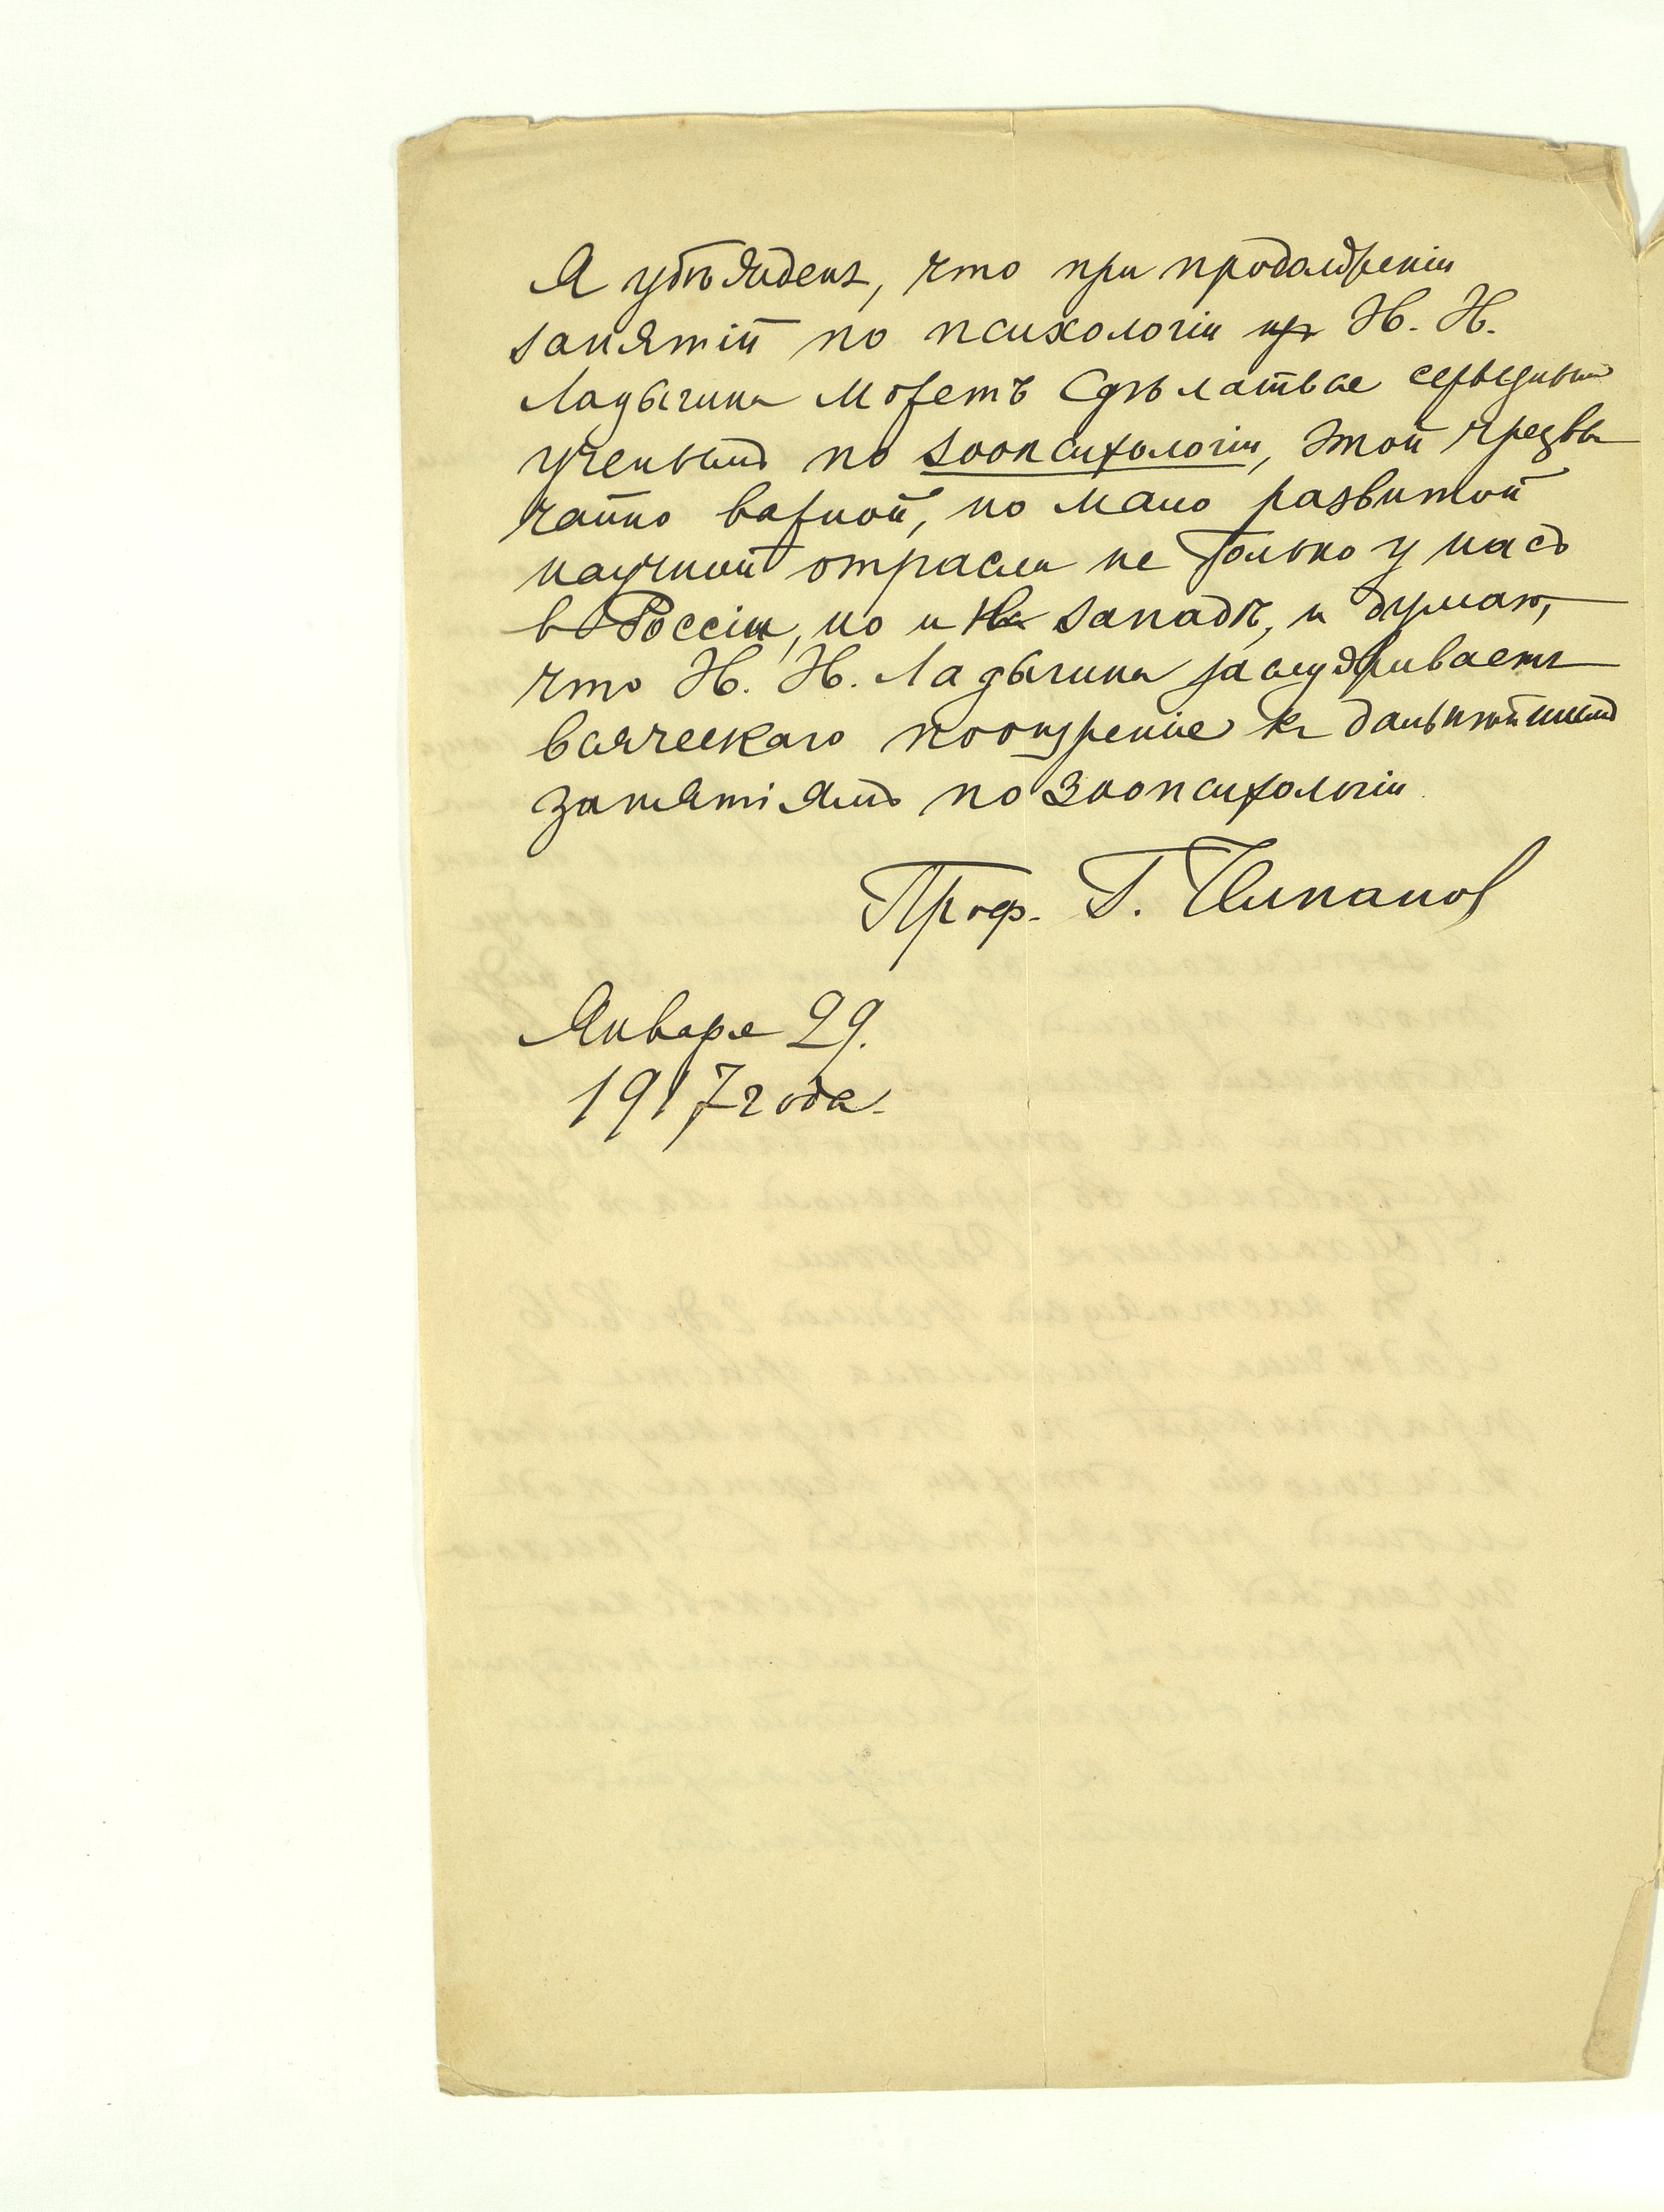 Я убѣжденъ, что при продолженіи
занятій по психологіи Н. Н.
Ладыгина можетъ сдѣлаться серьезнымъ
ученымъ по зоопсихологіи, этой чрезвы
чайно важной, но мало развитой
научной отрасли не только у насъ
в Россіи, но и на западѣ, и думаю,
что Н. Н. Ладыгина заслуживаетъ
всяческаго поощреніе къ дальнѣйшимъ
занятіямъ по зоопсихологіи.
Проф. Г. Челпанов
Января 29.
1917 года.